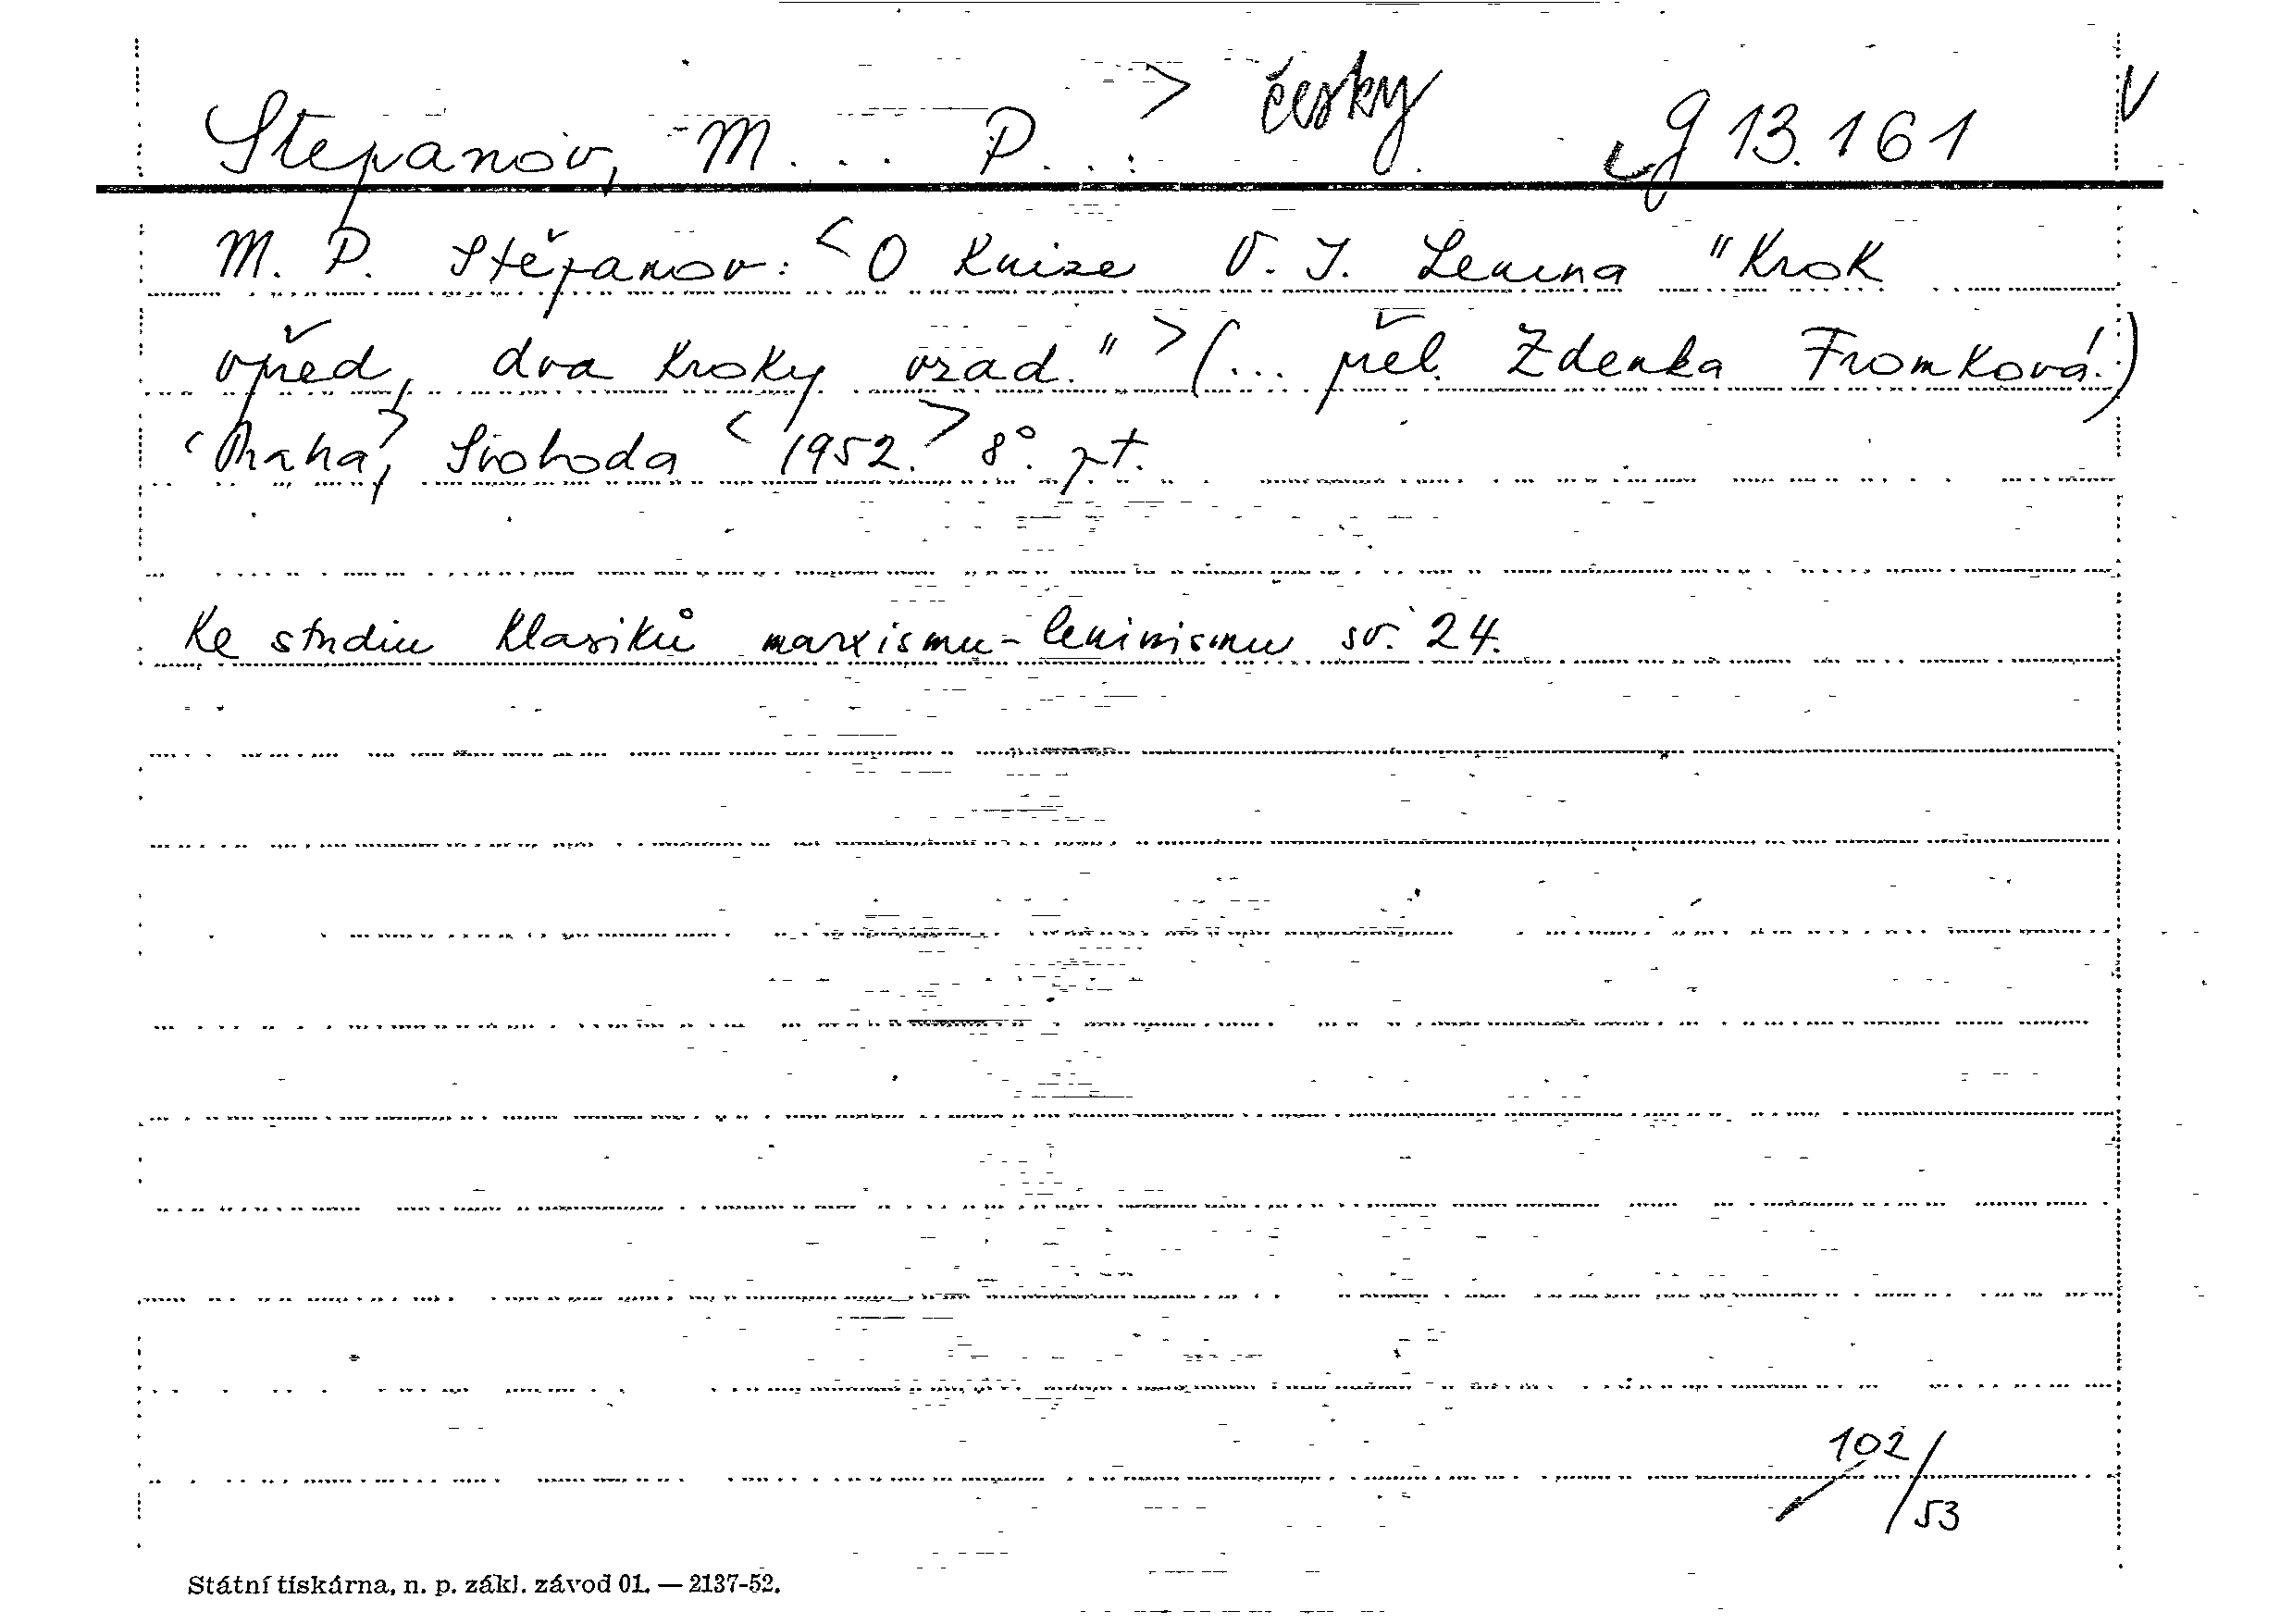 Stepanov, M... P...: > česky g 13.161 v
M. P. Stěpanov: <O knize V. I. Lenina "Krok
vpřed, dva kroky vzad."> (... přel. Zdenka Fromková.)
<Praha>, Svoboda <1952.> 8°. pt.
Ke studiu klasiků marxismu-leninismu sv. 24.
102/53
Státní tiskárna, n. p. zákl. závod 01. — 2137-52.